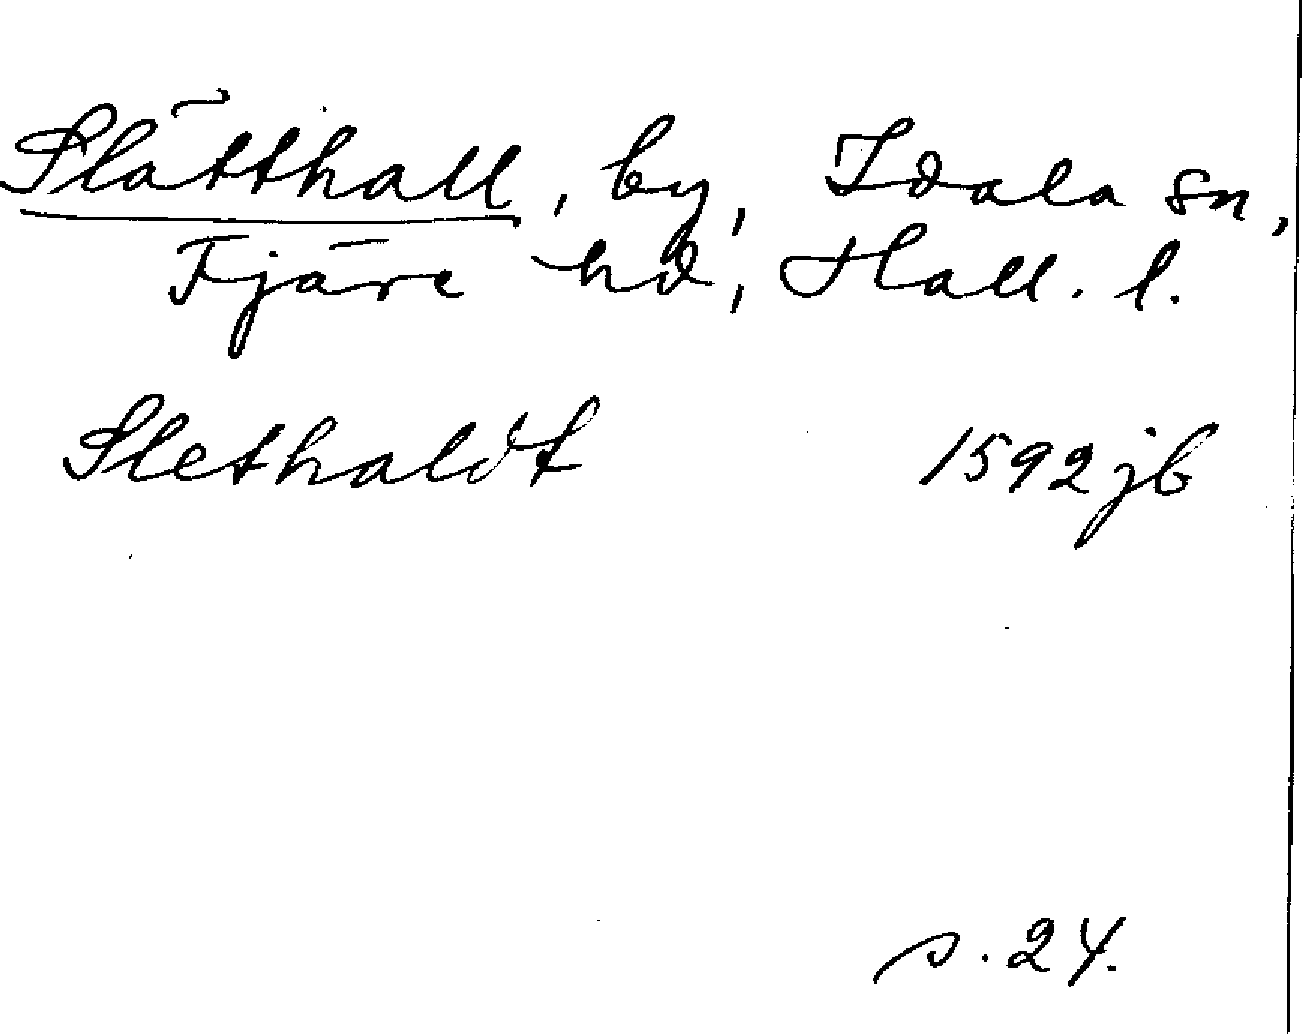 Slätthall, by, Idala sn,
Fjäre hd, Hall. l.
Slethaldt 1592 jb
s. 24.